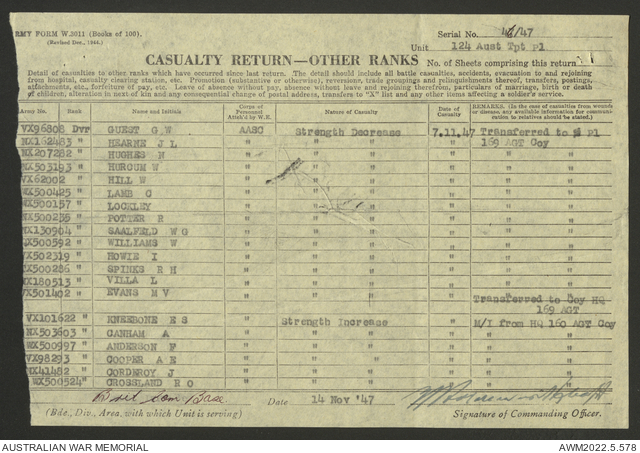 RMY FORM W.3011 (Books of 100).
(Revised Dec., 1944.)
Serial No. /47
Unit 124 Aust Tpt Pl
CASUALTY RETURN—OTHER RANKS
No. of Sheets comprising this return
Detail of casualties to other ranks which have occurred since last return. The detail should include all battle casualties, accidents, evacuation to and rejoining
from hospital, casualty clearing station, etc. Promotion (substantive or otherwise), reversions, trade groupings and relinquishments thereof, transfers, postings,
attachments, etc., forfeiture of pay, etc. Leave of absence without pay, absence without leave and rejoining therefrom, particulars of marriage, birth or death
of children; alteration in next of kin and consequential change of postal address, transfers to "X" list and any other items affecting a soldier's service.
Army No. Rank Name and Initials Corps of Personnel Attch'd by W.E. Nature of Casualty Date of Casualty REMARKS. (In the case of casualties from wounds or disease, any available information for communication to relatives should be stated.)
VX96808 Dvr GUEST G W AASC Strength Decrease 7.11.47 Transferred to Pl
NX162483 " HEARNE J L " " " " 169 AGT Coy
NX207282 " HUGHES H " " " " "
NX503193 " HURCUM W " " " " "
VX62002 " HILL W " " " " "
WX500425 " LAMB C " " " " "
WX500157 " LOCKLEY " " " " "
WX500235 " POTTER R " " " " "
NX130904 " SAALFELD W G " " " " "
WX500592 " WILLIAMS W " " " " "
VX502319 " HOWIE I " " " " "
VX500286 " SPINKS R H " " " " "
NX180513 " VILLA L " " " " "
VX501402 " EVANS M V " " " Transferred to Coy HQ
169 AGT
VX101622 " KNEEBONE E S " Strength Increase " M/I from HQ 160 AGT Coy
NX503603 " CANHAM A " " " " "
WX500997 " ANDERSON F " " " " "
VX98293 " COOPER A E " " " " "
NX41482 " CORDEROY J " " " " "
WX500524 " CROSSLAND R O " " " " "
Brit Com Base
Date 14 Nov '47
(Bde., Div., Area, with which Unit is serving)
Signature of Commanding Officer.
AUSTRALIAN WAR MEMORIAL
AWM2022.5.578